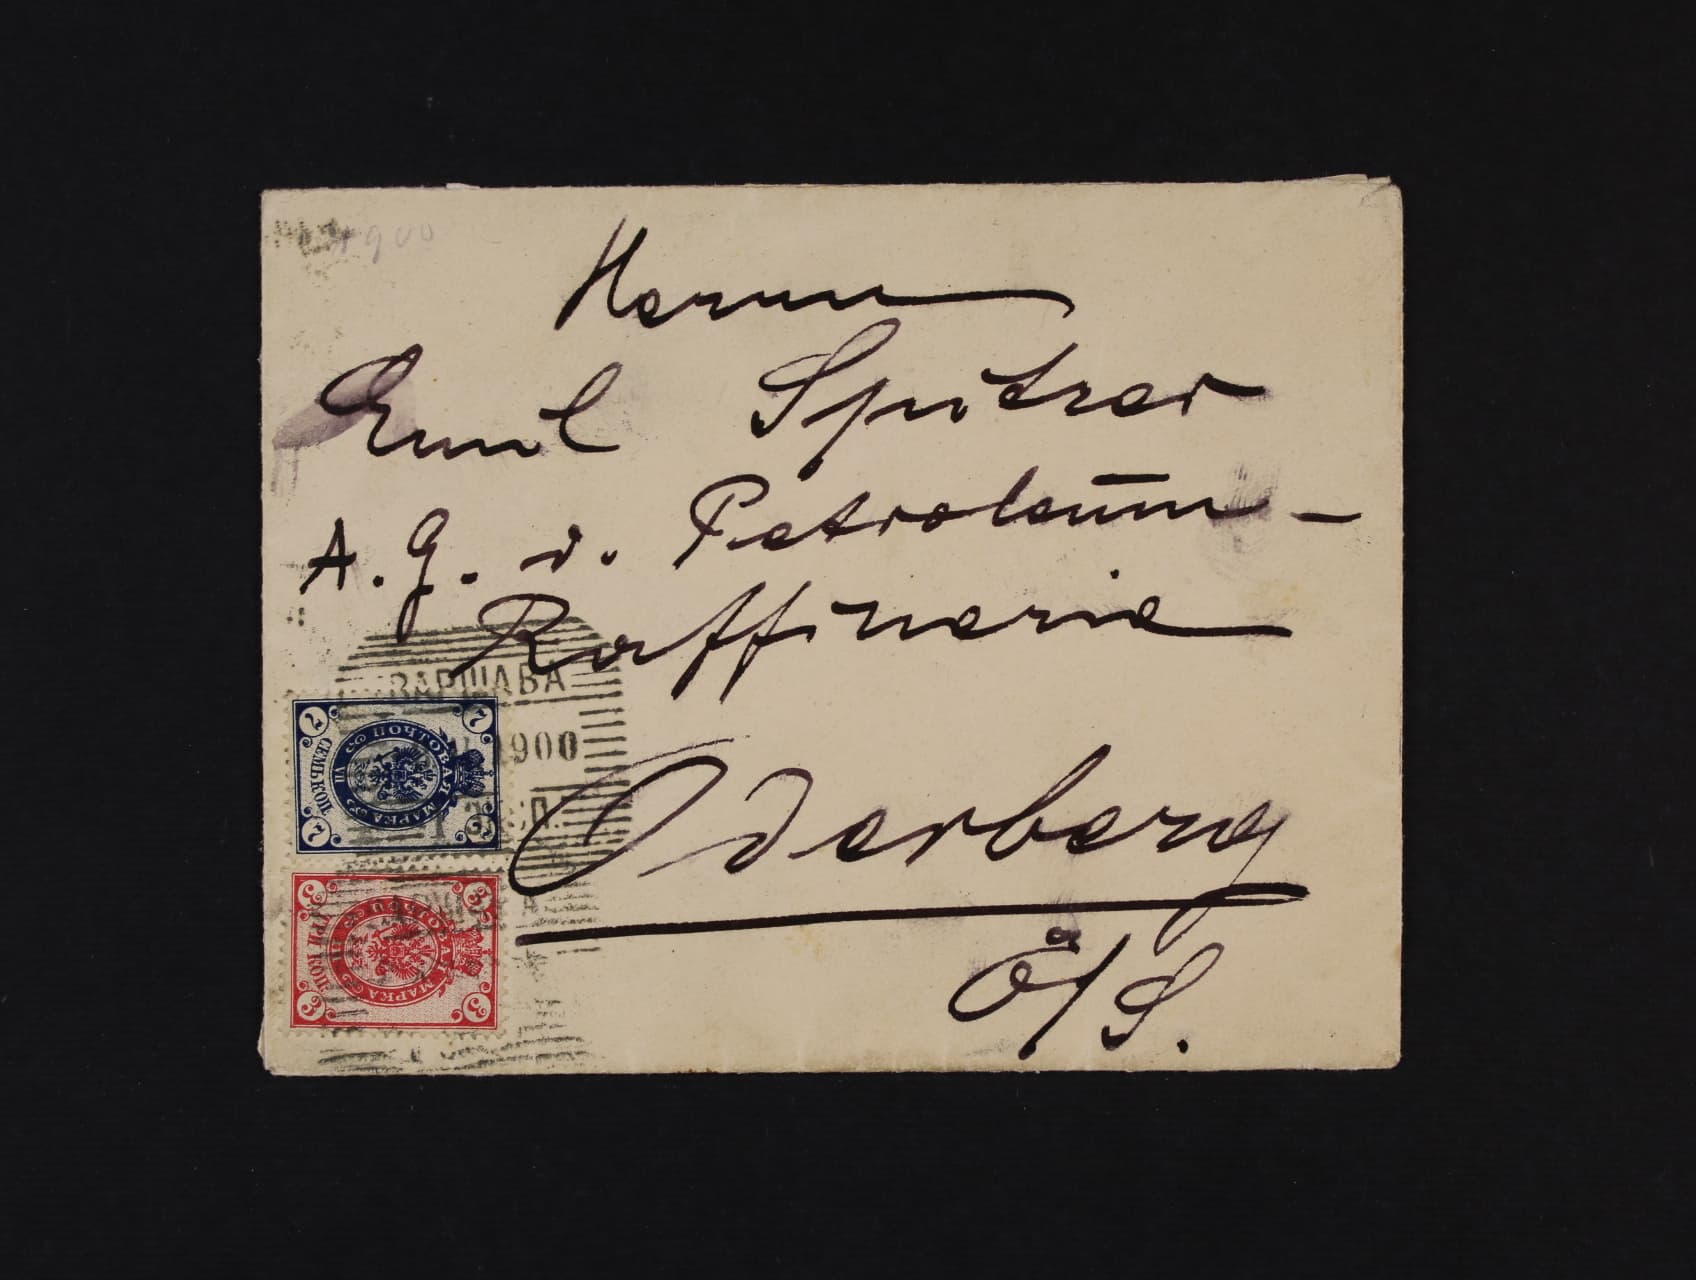 1900
Herrn
Emil Spitzer
A. G. d. Petroleum-
Raffinerie
Oderberg
Ö/S.
ВАРШАВА
1900
7 7
ПОЧТОВАЯ МАРКА
VII
СЕМЬ КОП.
7 7
3 3
ПОЧТОВАЯ МАРКА
III
ТРИ КОП.
3 3